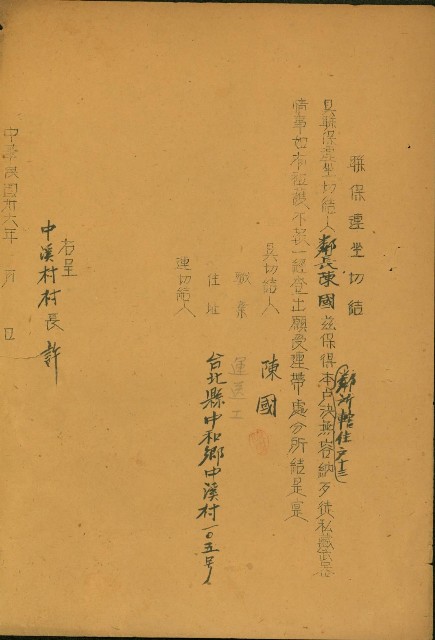 聯保連坐切結
具聯保連坐切結人鄰長陳國茲保得本戶決無容納歹徒私藏武器
鄰所轄住戶十三
情事如有隱諱不報一經查出願受連帶處分所結是實
具切結人 陳國
職業 運送工
住址 台北縣中和鄉中溪村一〇五号
連切結人
右呈
中溪村村長 許
中華民國卅六年 月 日